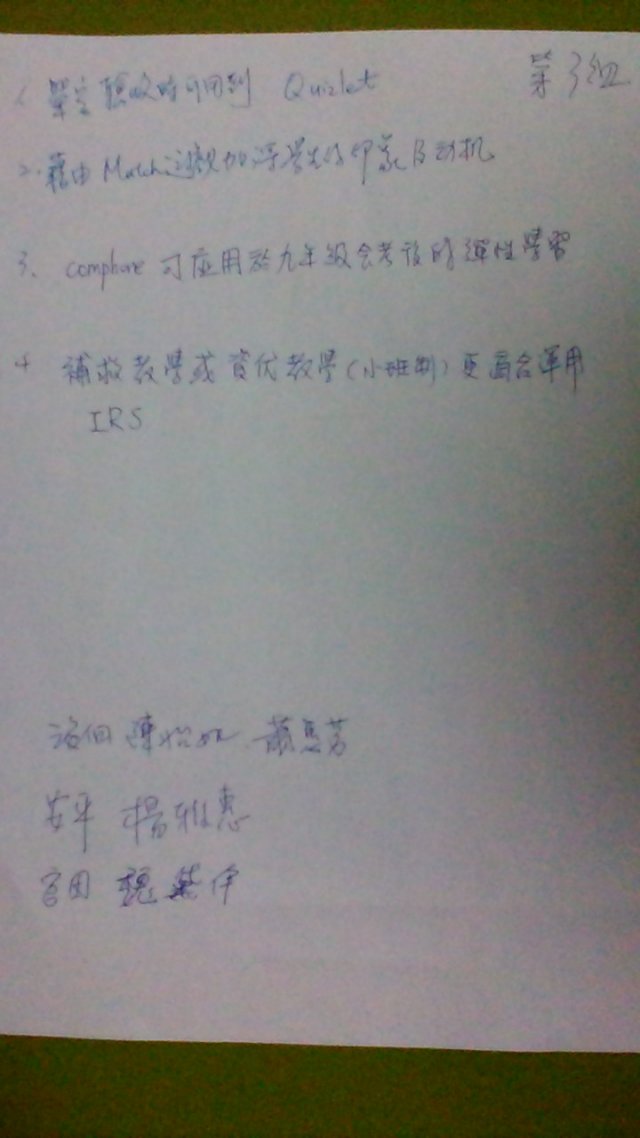 第3組
1. 單字驗收時可用到 Quizlet
2. 藉由Match遊戲加深學生的印象及动机
3. comphone 可应用於九年級会考後的彈性學習
4 補救教學或資優教學(小班制)更適合運用
IRS
陳怡如 蕭惠芳
安平 楊雅惠
官田 魏 伊